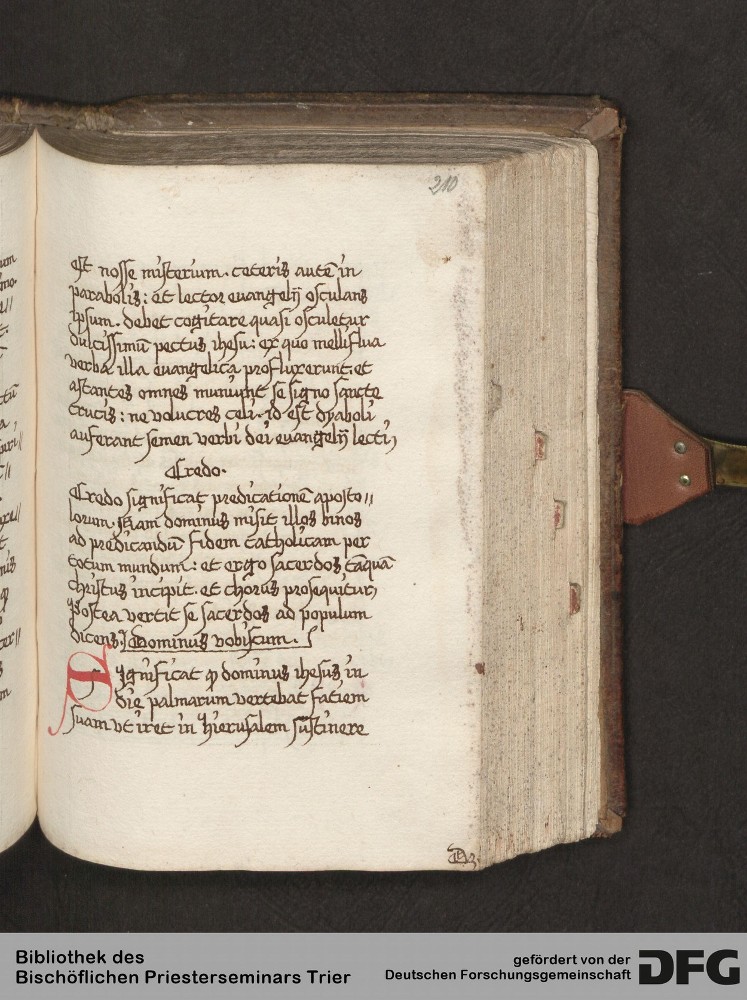 210
est nosse misterium. ceteris autē in
parabolis: et lector euangelij osculans
ipsum. debet cogitare quasi osculetur
dulcissimū pectus ihesu: ex quo melliflua
verba illa euangelica profluxerunt et
astantes omnes muniunt se signo sancte
crucis: ne volucres celi. id est dyaboli
auferant semen verbi dei euangelij lecti,
Credo.
Credo significat predicationē aposto//
lorum. Nam dominus misit illos binos
ad predicandū fidem catholicam per
totum mundum: et ergo sacerdos tāquā
christus incipit. et chorus prosequitur,
Postea vertit se sacerdos ad populum
dicens. Dominus vobiscum.
Significat ꝙ dominus ihesus in
die palmarum vertebat faciem
suam vt iret in hierusalem sustinere
Bibliothek des
Bischöflichen Priesterseminars Trier
gefördert von der
Deutschen Forschungsgemeinschaft
DFG